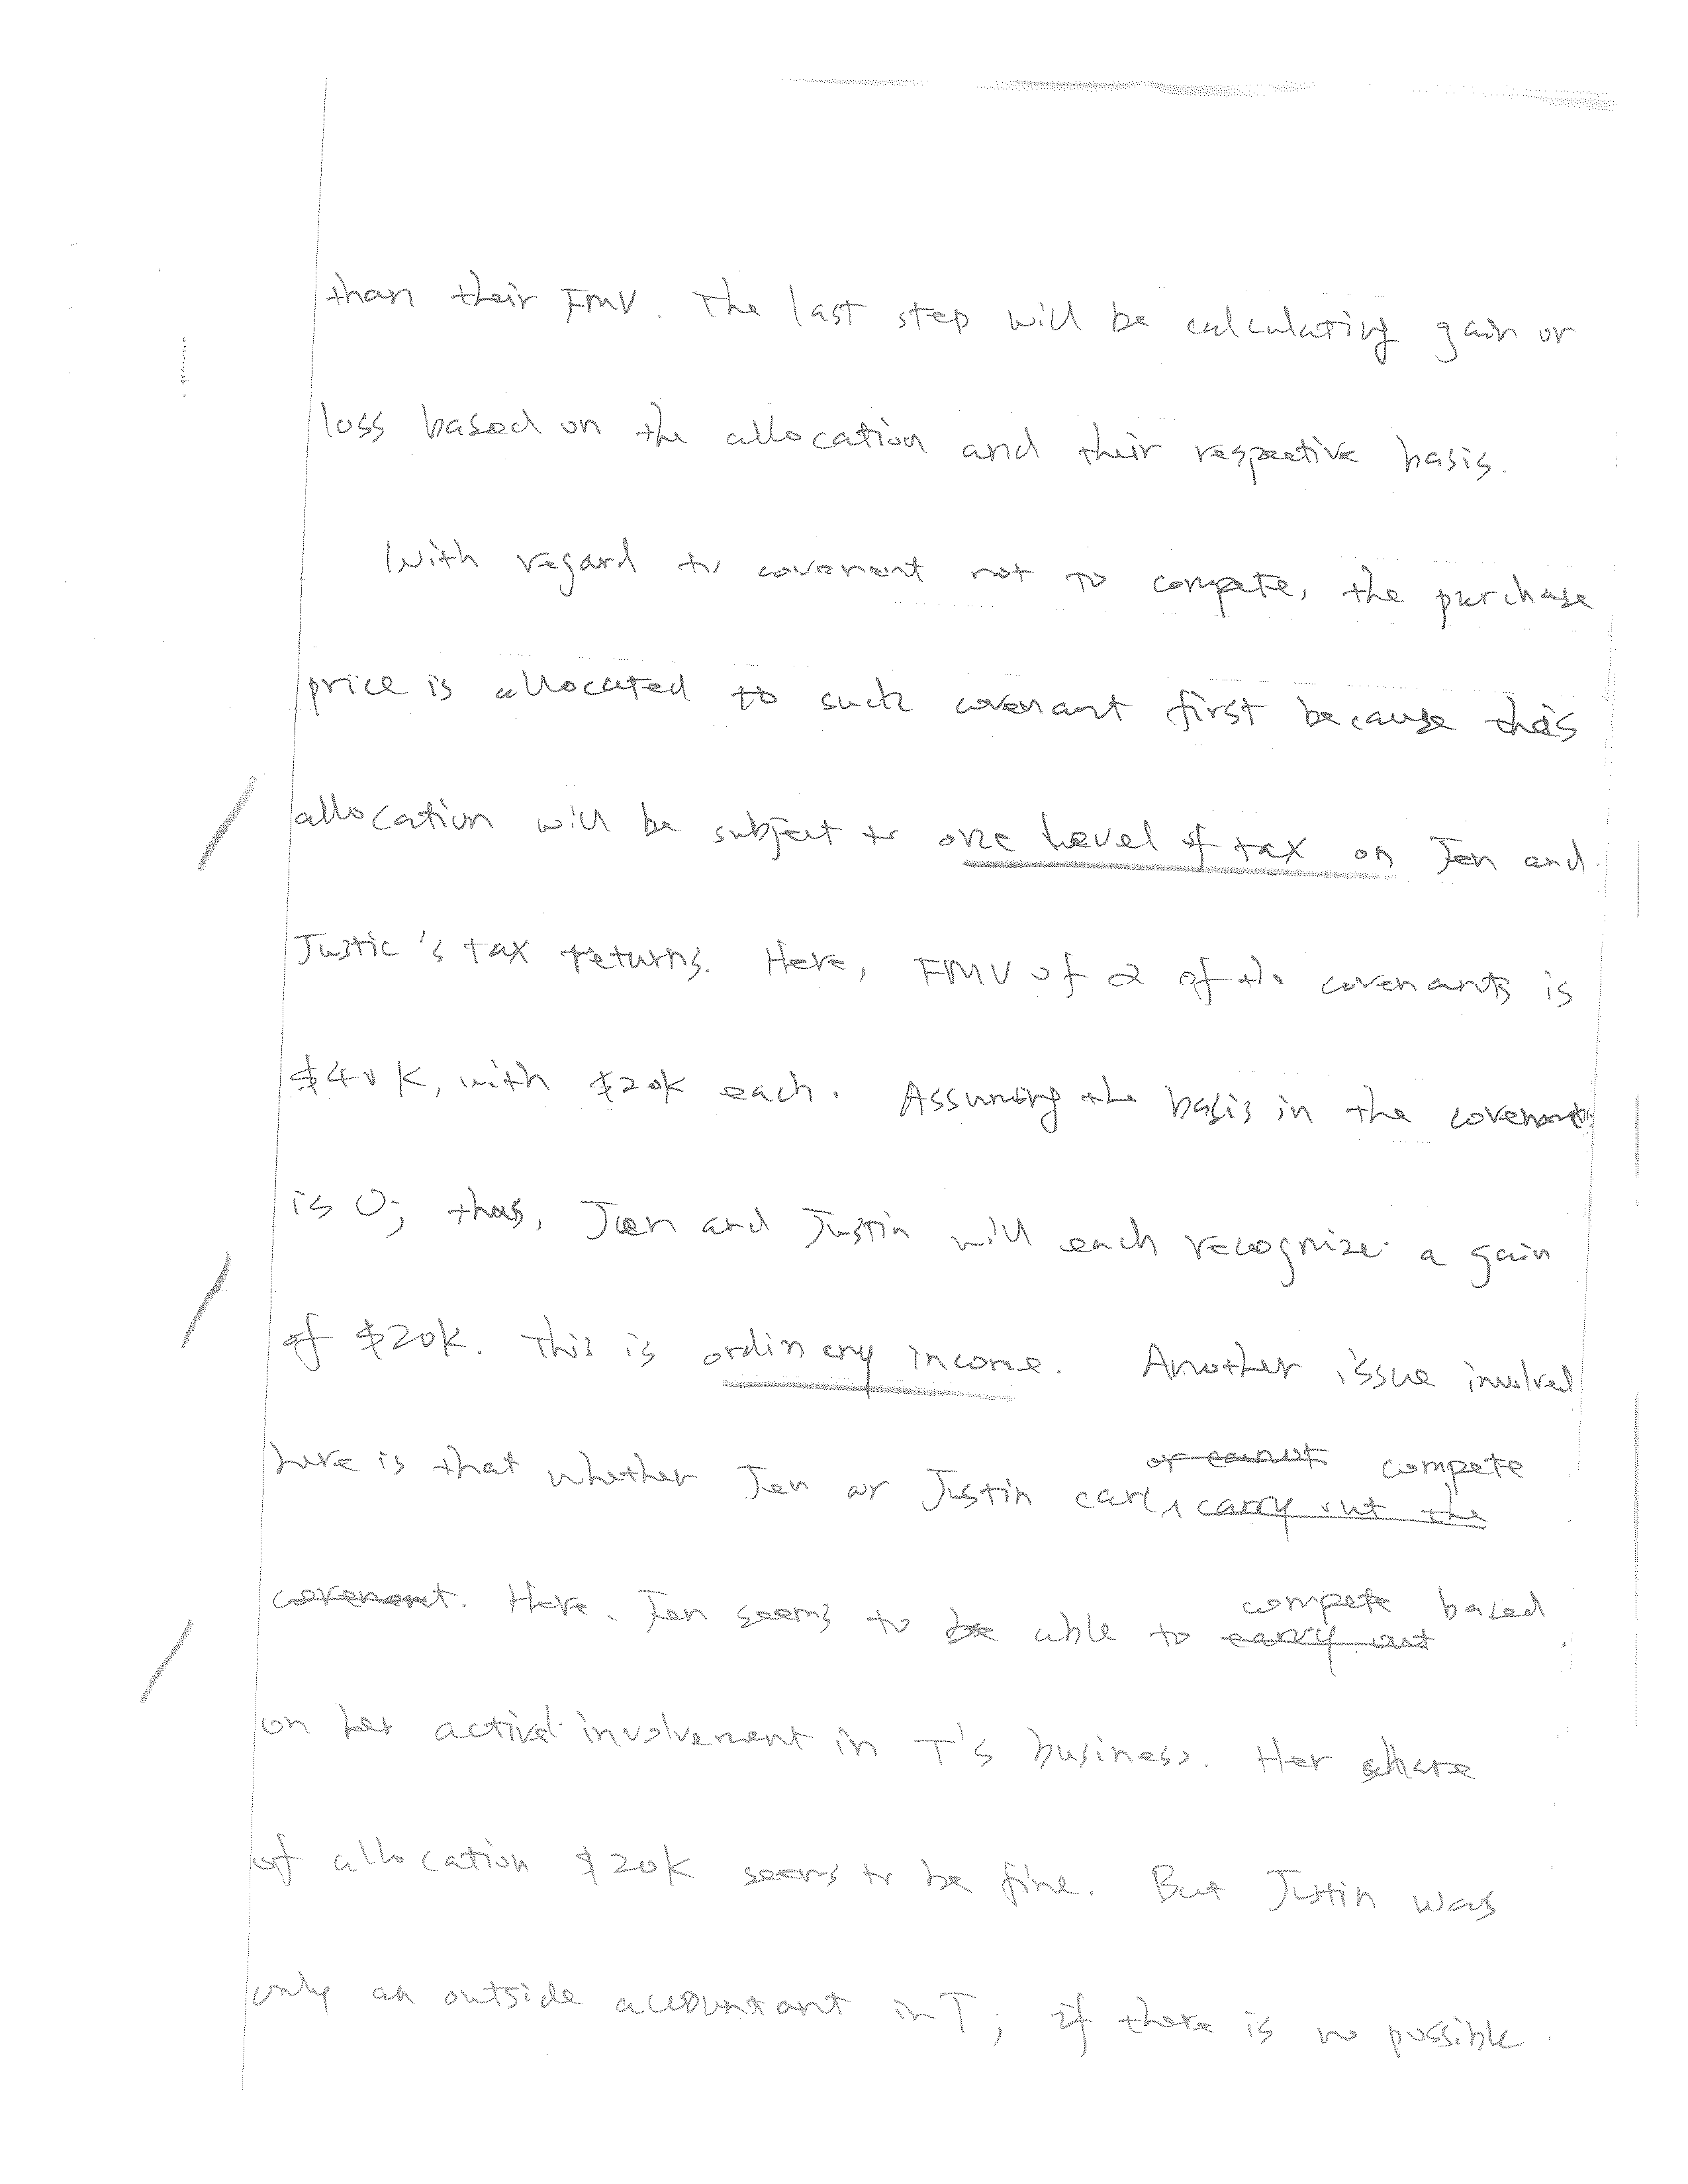 than their FMV. The last step will be calculating gain or
loss based on the allocation and their respective basis.
With regard to covenant not to compete, the purchase
price is allocated to such covenant first because this
allocation will be subject to one level of tax on Jen and
Justic's tax returns. Here, FMV of 2 of the covenants is
$40K, with $20K each. Assuming the basis in the covenants
is 0; thus, Jen and Justin will each recognize a gain
of $20K. This is ordinary income. Another issue involved
here is that whether Jen or Justin can or cannot compete
carry out the
covenant. Here, Jen seems to be able to carry out compete based
on her active involvement in T's business. Her share
of allocation $20K seems to be fine. But Justin was
only an outside accountant in T; if there is no possible